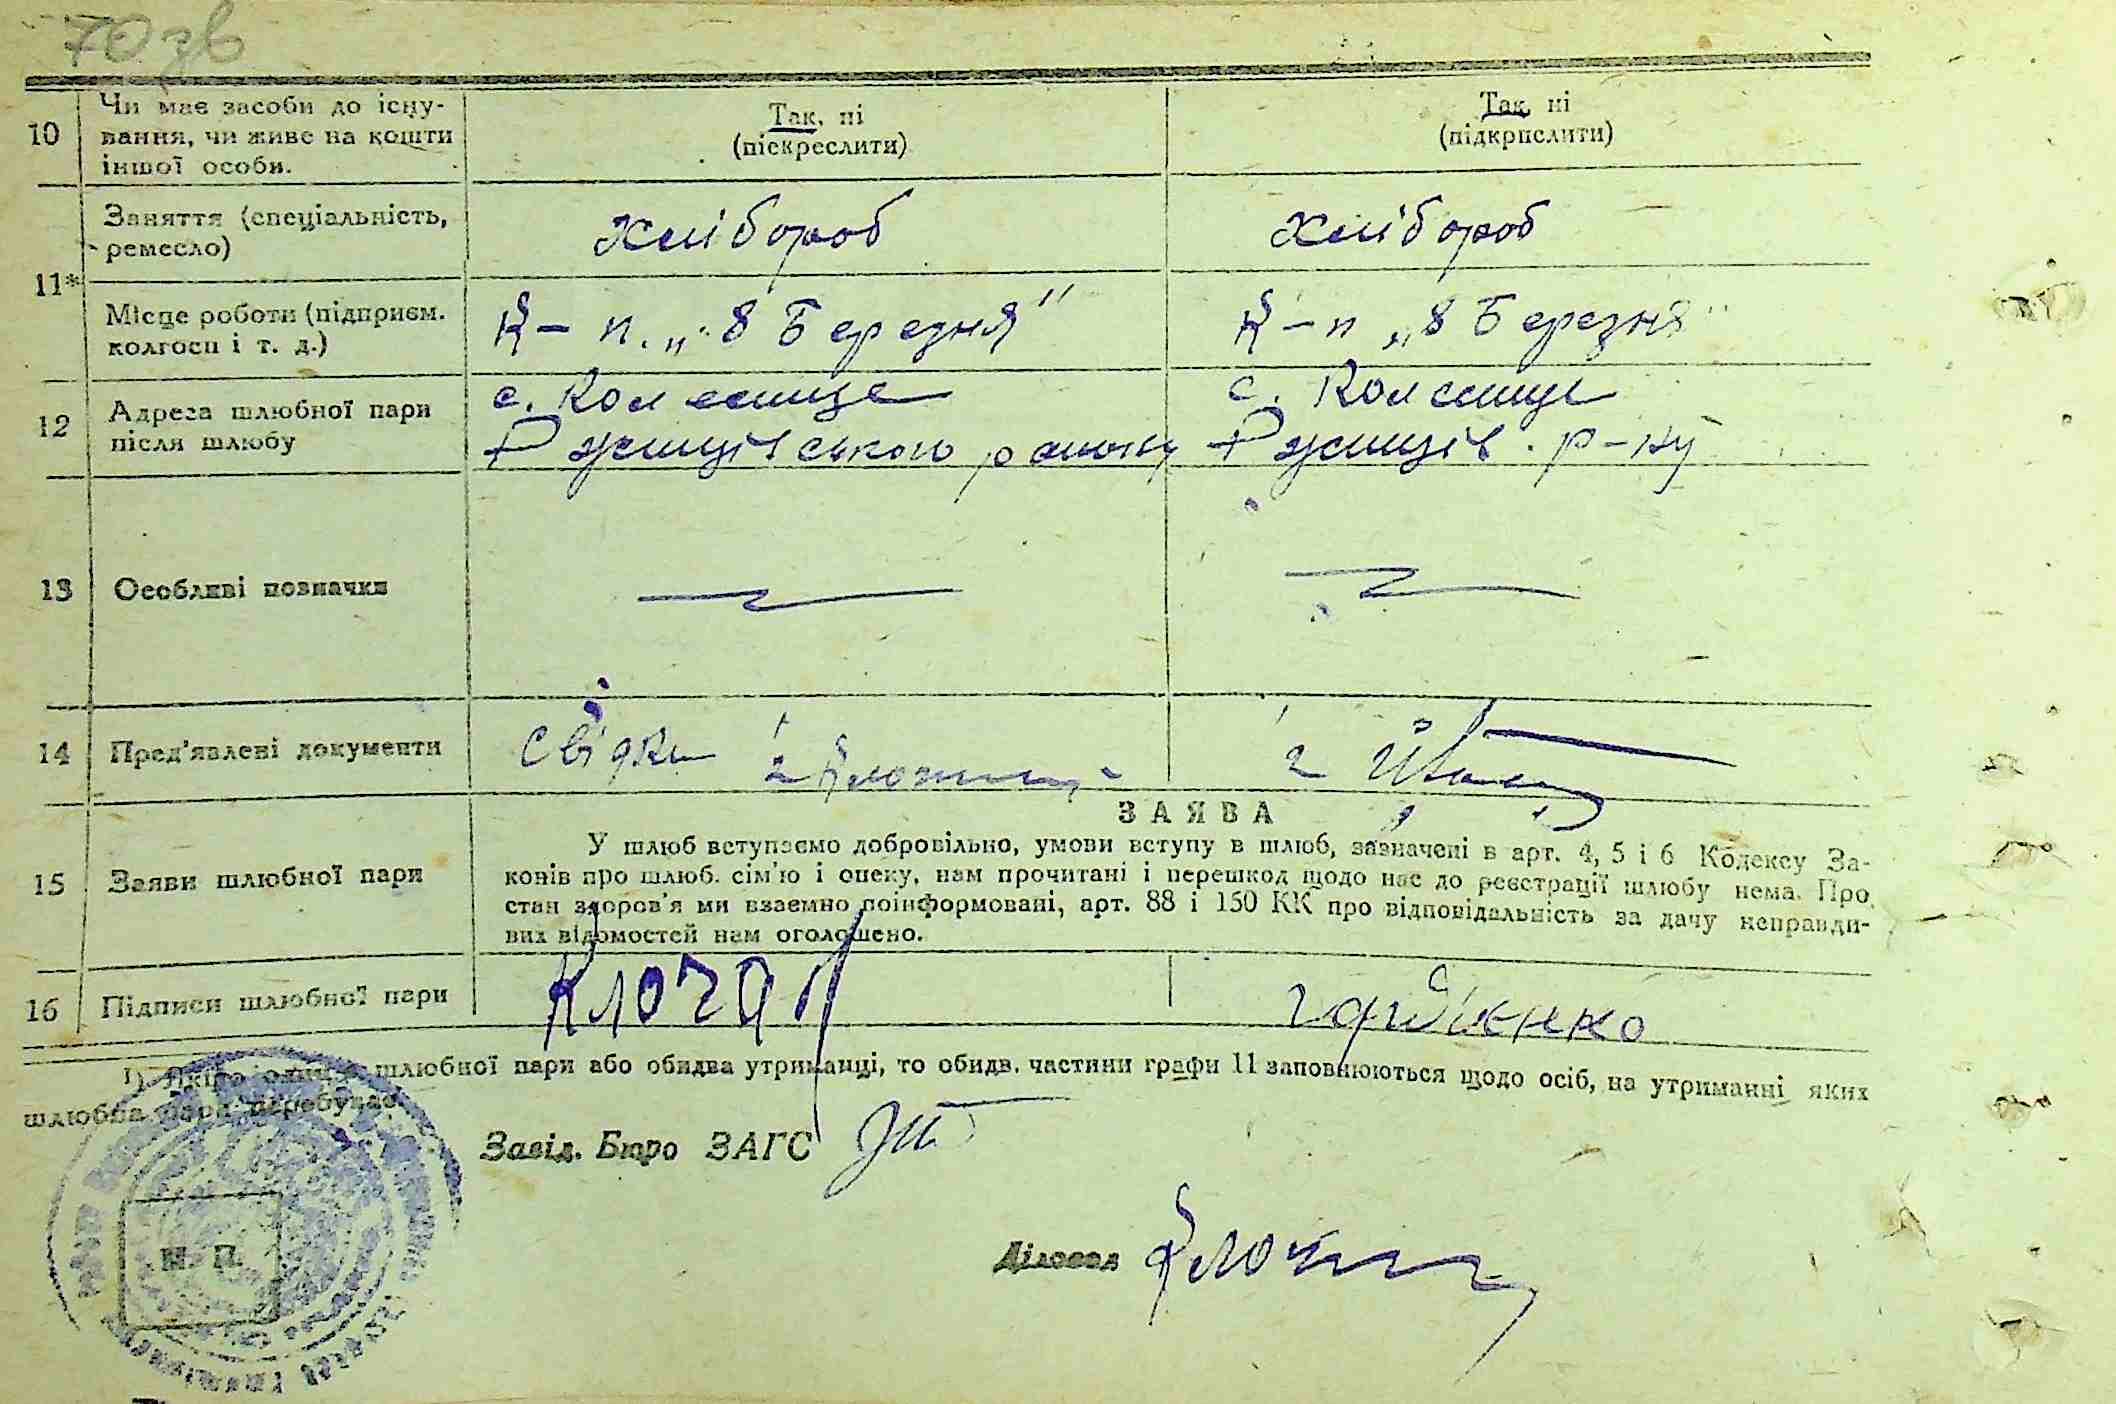 70 зв
10 Чи має засоби до існу-
вання, чи живе на кошти
іншої особи.
Так, ні
(піскреслити)
Так, ні
(підкрпслити)
11* Заняття (спеціальність,
ремесло)
Хлібороб
Хлібороб
Місце роботи (підприєм.
колгосп і т. д.)
К-п. „8 Березня"
К-п „8 Березня"
12 Адреса шлюбної пари
після шлюбу
с.
Ржищівського району
с.
Ржищів. р-ну
13 Особливі позначки
14 Пред'явлені документи
Свідки
15 Заяви шлюбної пари
ЗАЯВА
У шлюб вступаємо добровільно, умови вступу в шлюб, зазначені в арт. 4, 5 і 6 Кодексу За-
конів про шлюб. сім'ю і опеку, нам прочитані і перешкод щодо нас до реєстрації шлюбу нема. Про
стан здоров'я ми взаємно поінформовані, арт. 88 і 150 КК про відповідальність за дачу неправди-
вих відомостей нам оголошено.
16 Підписи шлюбної пари
Клочар
гордієнко
1) Якщо один з шлюбної пари або обидва утриманці, то обидв. частини графи 11 заповнюються щодо осіб, на утриманні яких
шлюбна пара перебуває.
Завід. Бюро ЗАГС
Діловод
М. П.